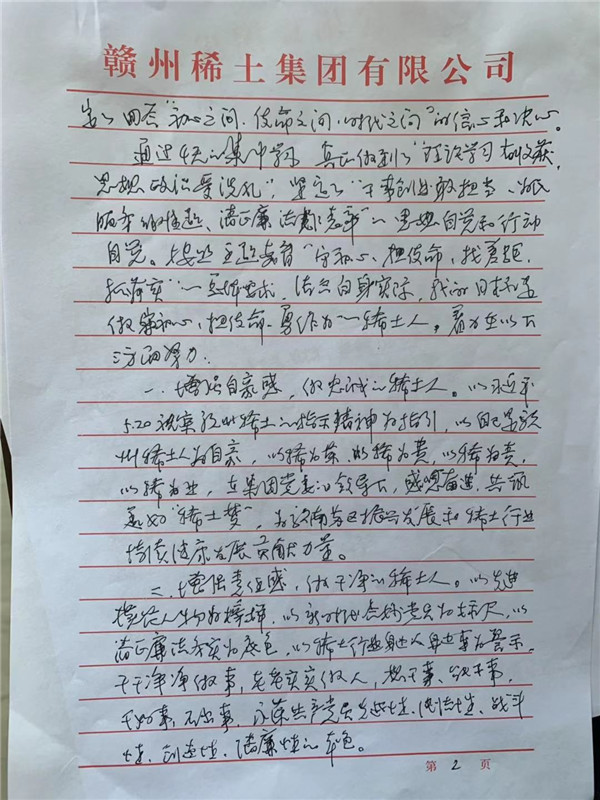 赣州稀土集团有限公司
答“初心之问、使命之问、时代之问”的信心和决心。
通过4天的集中学习,真正做到了“理论学习有收获,
思想政治受洗礼”,坚定了“干事创业敢担当、为民
服务解难题、清正廉洁作表率”的思想自觉和行动
自觉。主题教育“守初心、担使命,找差距、
抓落实”的总体要求,结合自身实际,我的目标是
做守初心、担使命、勇作为的稀土人。着力在以下
三方面努力:
一、增强自豪感,做忠诚的稀土人。以习近平
5.20视察赣州稀土的指示精神为指引,以自己是赣
州稀土人为自豪,以稀为荣、以稀为贵,以稀为责,
以稀为业,在集团党委的领导下,感恩奋进,共筑
美好“稀土梦”,为赣南苏区振兴发展和稀土行业
持续健康发展贡献力量。
二、增强责任感,做干净的稀土人。以先进
模范人物为榜样,以新时代合格党员为标尺,以
清正廉洁务实为底色,以稀土行业身边人身边事为警示,
干干净净做事,老老实实做人,想干事、会干事,
干好事、不出事,永葆共产党员先进性、纯洁性、战斗
性、创造性、清廉性的本色。
第2页